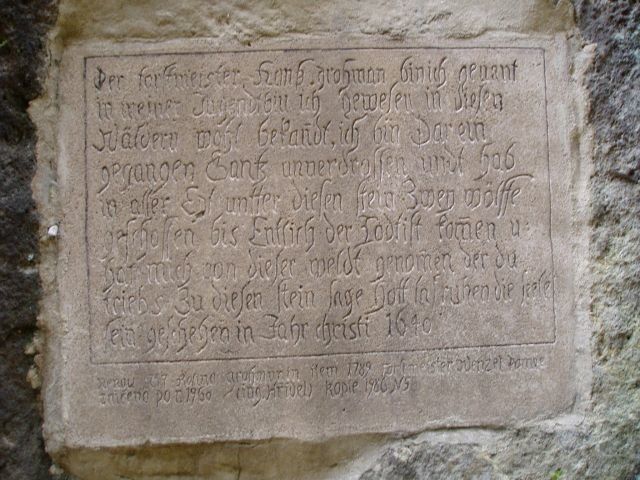 Der forstmeister Hanß grohman bin ich genant
in meiner Jugendt bin ich gewesen in diesen
Wäldern wohl bekandt, ich bin Darein
gegangen Gantz unverdrossen undt hab
in aller Eyl untter diesen stein Zwey wölffe
geschossen bis Entlich der Todt ist kom̄en u:
hat mich von dieser weldt genom̄en der du
triebs Zu diesen stein sage Gott las ruhen die seele
sein geschehen in Jahr christi 1640
Renov 1717 in Rem 1789 Wenzel
PO R 1960 (ing. Hřídel) kopie 1986 NS